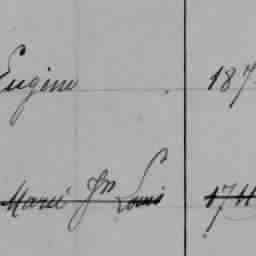 Eugène 187
Marie Jn Louis 1711